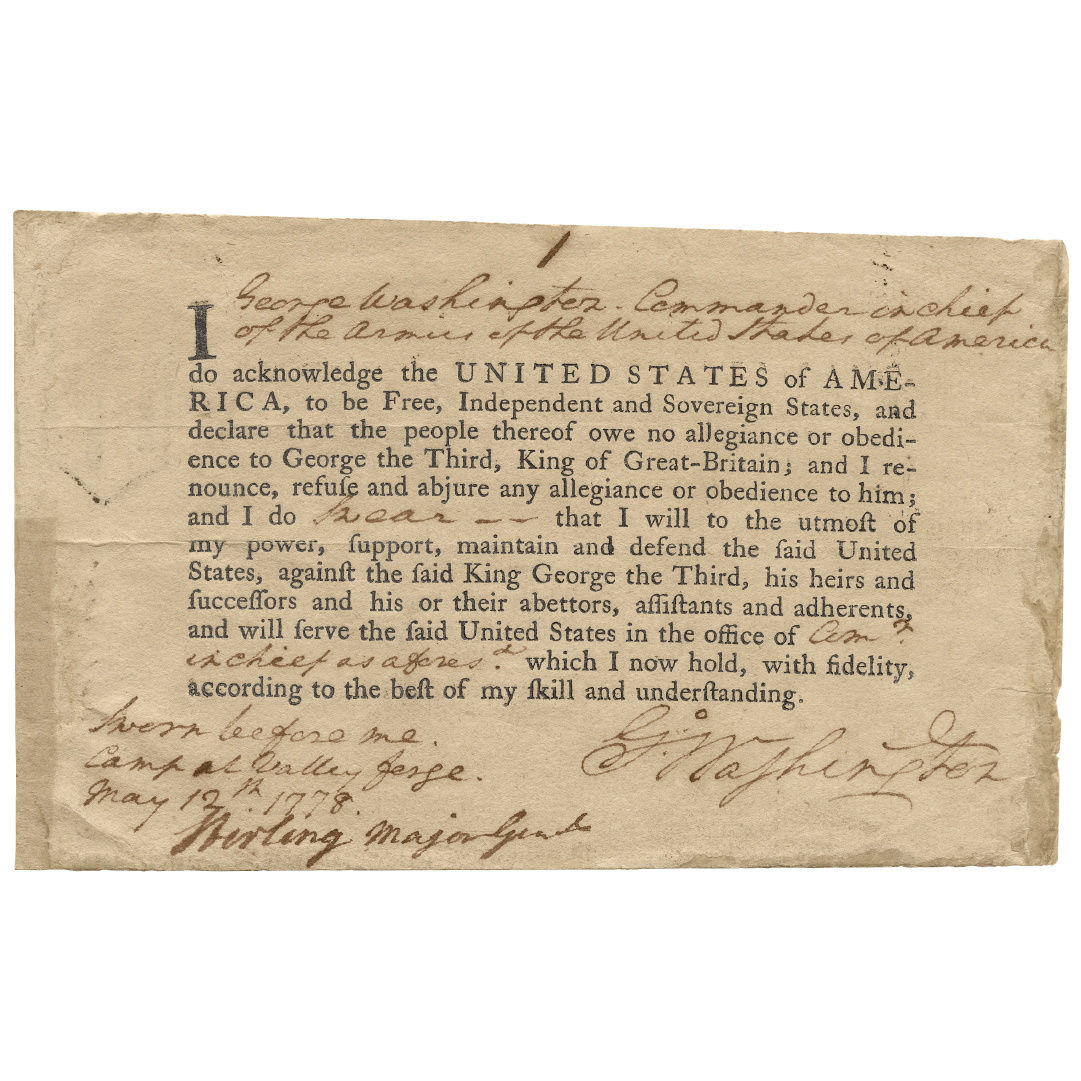 1
George Washington. Commander in chief
of the Armies of the United States of America
I
do acknowledge the UNITED STATES of AME-
RICA, to be Free, Independent and Sovereign States, and
declare that the people thereof owe no allegiance or obedi-
ence to George the Third, King of Great-Britain; and I re-
nounce, refuſe and abjure any allegiance or obedience to him;
and I do Swear -- that I will to the utmoſt of
my power, ſupport, maintain and defend the ſaid United
States, againſt the ſaid King George the Third, his heirs and
ſucceſſors and his or their abettors, aſſiſtants and adherents,
and will ſerve the ſaid United States in the office of Comr.
in chief as afores.d which I now hold, with fidelity,
according to the beſt of my ſkill and underſtanding.
Sworn before me.
Camp at Valley forge.
May 12th. 1778.
Stirling Major Genl
Go. Washington